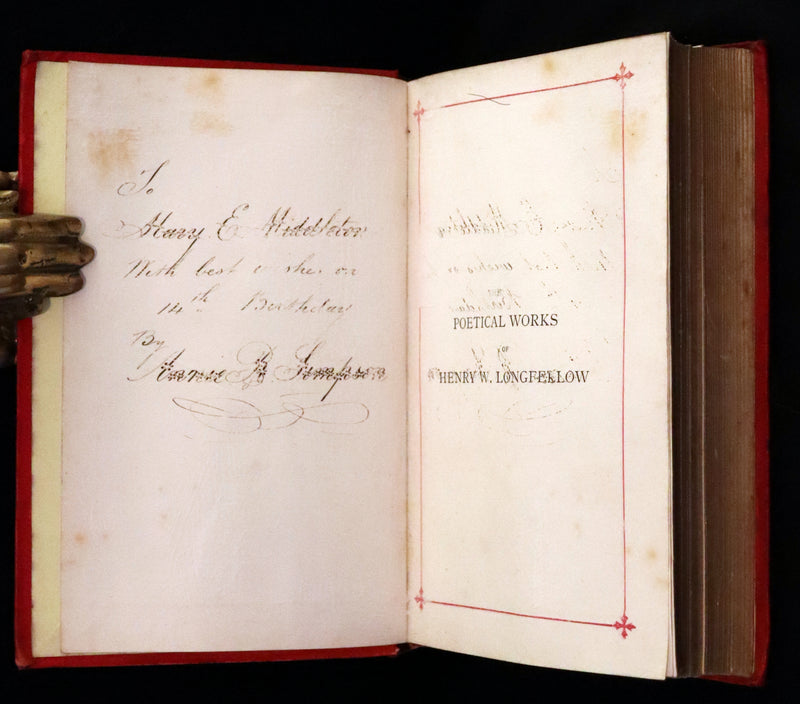 To
Mary E Middleton
With best wishes on
14th Birthday
By
Annie B. Simpson
POETICAL WORKS
OF
HENRY W. LONGFELLOW